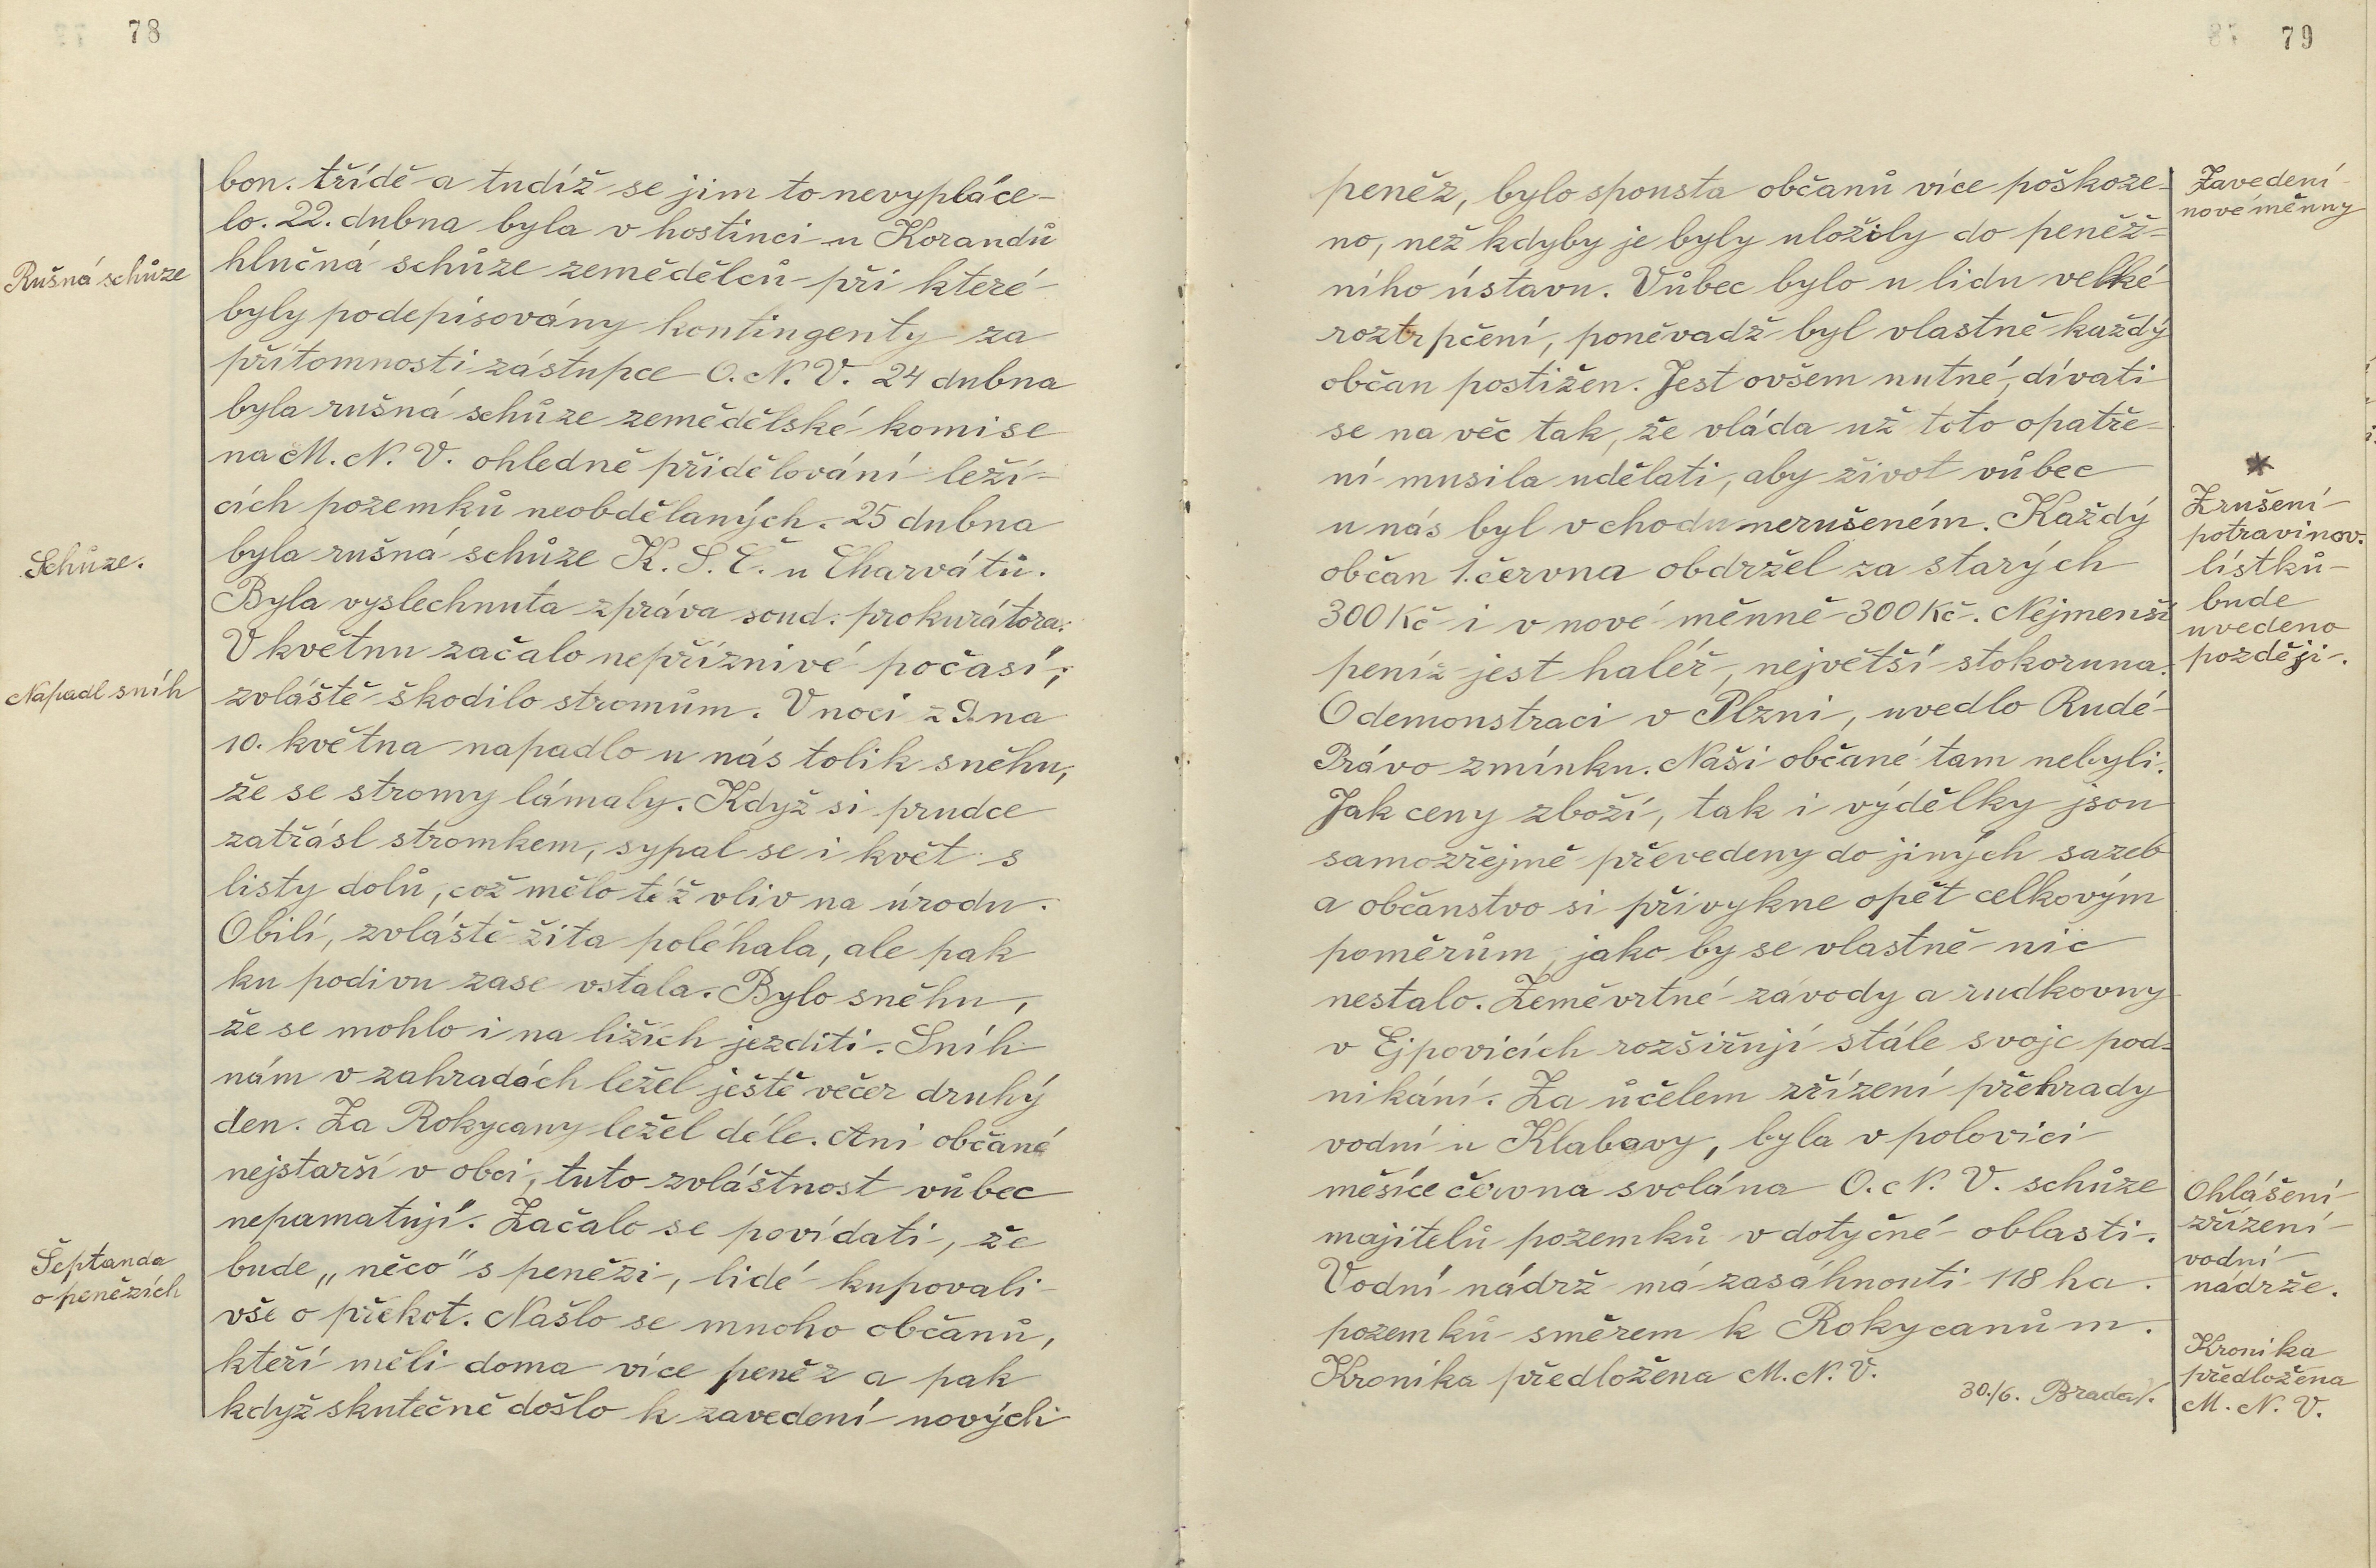 78
bon. třídě a tudíž se jim to nevypláce-
lo. 22. dubna byla v hostinci u Korandů
Rušná schůze
hlučná schůze zemědělců při které
byly podepisovány kontingenty za
přítomnosti zástupce O. N. V. 24 dubna
byla rušná schůze zemědělské komise
na M. N. V. ohledně přidělování leží-
cích pozemků neobdělaných. 25 dubna
Schůze.
byla rušná schůze K. S. Č. u Charvátů.
Byla vyslechnuta zpráva soud. prokurátora.
V květnu začalo nepříznivé počasí,
Napadl sníh
zvláště škodilo stromům. V noci z 9. na
10. května napadlo u nás tolik sněhu,
že se stromy lámaly. Když si prudce
zatřásl stromkem, sypal se i květ s
listy dolů, což mělo též vliv na úrodu.
Obilí, zvláště žita poléhala, ale pak
ku podivu zase vstala. Bylo sněhu,
že se mohlo i na ližích jezditi. Sníh
nám v zahradách ležel ještě večer druhý
den. Za Rokycany ležel déle. Ani občané
nejstarší v obci, tuto zvláštnost vůbec
nepamatují. Začalo se povídati, že
Šeptanda
o penězích
bude „něco" s penězi, lidé kupovali
vše o překot. Našlo se mnoho občanů,
kteří měli doma více peněz a pak
když skutečně došlo k zavedení nových
79
peněz, bylo spousta občanů více poškoze-
Zavedení
nové měnny
no, než kdyby je byly uložily do peněž-
ního ústavu. Vůbec bylo u lidu velké
roztrpčení, poněvadž byl vlastně každý
občan postižen. Jest ovšem nutné, dívati
se na věc tak, že vláda už toto opatře-
ní musila udělati, aby život vůbec
*
Zrušení
potravinov.
lístků
bude
uvedeno
později.
u nás byl v chodu nerušeném. Každý
občan 1. června obdržel za starých
300 Kč i v nové měnně 300 Kč. Nejmenší
peníz jest haléř, největší stokoruna.
O demonstraci v Plzni, uvedlo Rudé
Právo zmínku. Naši občané tam nebyli.
Jak ceny zboží, tak i výdělky jsou
samozřejmě převedeny do jiných sazeb
a občanstvo si přivykne opět celkovým
poměrům, jako by se vlastně nic
nestalo. Zeměvrtné závody a rudkovny
v Ejpovicích rozšiřují stále svoje pod-
nikání. Za účelem zřízení přehrady
vodní u Klabavy, byla v polovici
měsíce června svolána O. N. V. schůze
Ohlášení
zřízení
vodní
nádrže.
majitelů pozemků v dotyčné oblasti.
Vodní nádrž má zasáhnouti 118 ha.
pozemků směrem k Rokycanům.
Kronika předložena M. N. V.
Kronika
předložena
M. N. V.
30./6. Brada